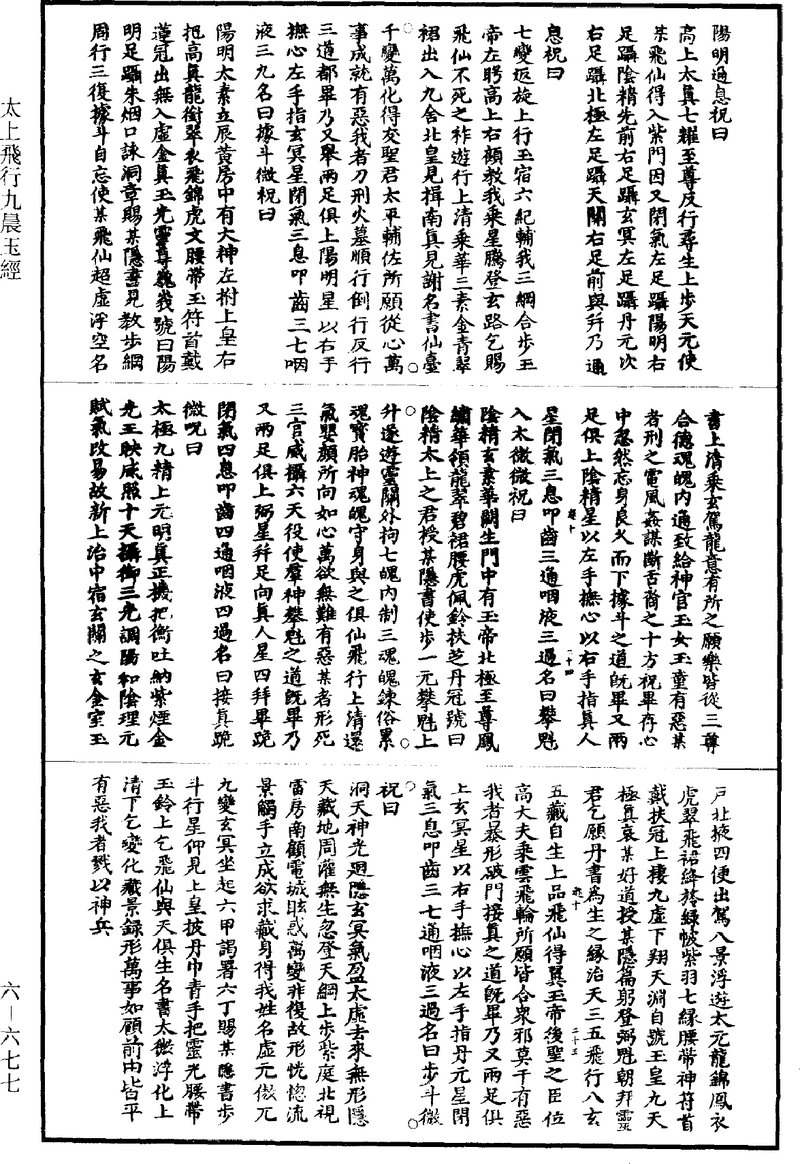 太上飛行九晨玉經
六—六七七
陽明通息祝曰
高上太真七耀至尊反行尋生上步天元使
某飛仙得入紫門因又閉氣左足躡陽明右
足躡陰精先前右足躡玄冥左足躡丹元次
右足躡北極左足躡天關右足前與并乃通
息祝曰
七變返旋上行玉宿六紀輔我三綱合步玉
帝左眄高上右顧教我乘星騰登玄路乞賜
飛仙不死之祚遊行上清乘華三素金青翠
裙出入九舍北皇見揖南真見謝名書仙臺
千變萬化得友聖君太平輔佐所願從心萬
事成就有惡我者刀刑火墓順行倒行反行
三道都畢乃又舉兩足俱上陽明星以右手
撫心左手指玄冥星閉氣三息叩齒三七咽
液三九名曰據斗微祝曰
陽明太素立辰黃房中有大神左柎上皇右
把高真龍銜翠衣飛錦虎文腰帶玉符首戴
蓮冠出無入虛金真玉光靈尊巍峩號曰陽
明足躡朱烟口詠洞章賜某隱書見教步綱
周行三復據斗自忘使某飛仙超虛浮空名
書上清乘玄駕龍意有所之願樂皆從三尊
合德魂魄内通致給神官玉女玉童有惡某
者刑之電風姦謀斷舌裔之十方祝畢存心
中忽然忘身良久而下據斗之道既畢又兩
足俱上陰精星以左手撫心以右手指真人
星閉氣三息叩齒三通咽液三過名曰攀魁
入太微微祝曰
陰精玄素華關生門中有玉帝北極至尊鳳
繡華領龍翠碧裙腰虎佩鈴扶芝丹冠號曰
陰精太上之君授某隱書使步一元攀魁上
升遂遊靈闕外拘七魄内制三魂魄鍊俗累
魂寶胎神魂魄守身與之俱仙飛行上清還
氣嬰顏所向如心萬欲無難有惡某者形死
三官威攝六天役使羣神攀魁之道既畢乃
又兩足俱上弼星并足向真人星四拜畢跪
閉氣四息叩齒四通咽液四過名曰接真跪
微呪曰
太極九精上元明真正機把衡吐納紫煙金
光玉映咸照十天攝御三光調陽和陰理元
賦氣改易故新上治中宿玄關之玄金室玉
戶北掖四便出駕八景浮遊太元龍錦鳳衣
虎翠飛裙絳袴綠帔紫羽七緣腰帶神符首
戴扶冠上棲九虛下翔天淵自號玉皇九天
極真哀某好道授某隱篇躬登弼魁朝拜靈巫
君乞願丹書為生之緣治天三五飛行八玄
五藏自生上品飛仙得翼玉帝後聖之臣位
高大夫乘雲飛輪所願皆合衆邪莫干有惡
我者暴形破門接真之道既畢乃又兩足俱
上玄冥星以右手撫心以左手指丹元星閉
氣三息叩齒三七通咽液三過名曰步斗微
祝曰
洞天神光廻隱玄冥氣盈太虛去來無形隱
天藏地周灌無生忽登天綱上步紫庭北視
雷房南顧電城眩惑萬變非復故形恍惚流
景觸手立成欲求藏身得我姓名虛元微兀
九變玄冥坐起六甲謁署六丁賜某隱書步
斗行星仰見上皇披丹巾青手把靈光腰帶
玉鈴上乞飛仙與天俱生名書太微浮化上
清下乞變化藏景錄形萬事如願前向皆平
有惡我者戮以神兵